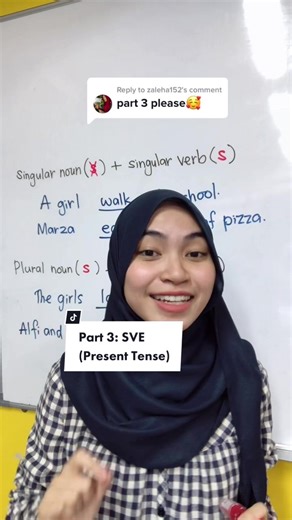 Reply to zaleha152's comment
part 3 please🥰
Singular noun (s) + singular verb (s)
A girl walk school.
Marza of pizza.
Plural noun (s)
The girls
Alfi and
Part 3: SVE
(Present Tense)